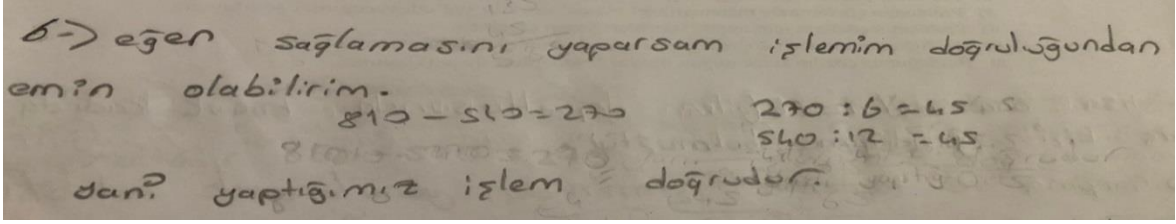 6-) eğer sağlamasını yaparsam işlemim doğruluğundan
emin olabilirim.
810 - 540 = 270 270 : 6 = 45
540 : 12 = 45
yani yaptığımız işlem doğrudur.